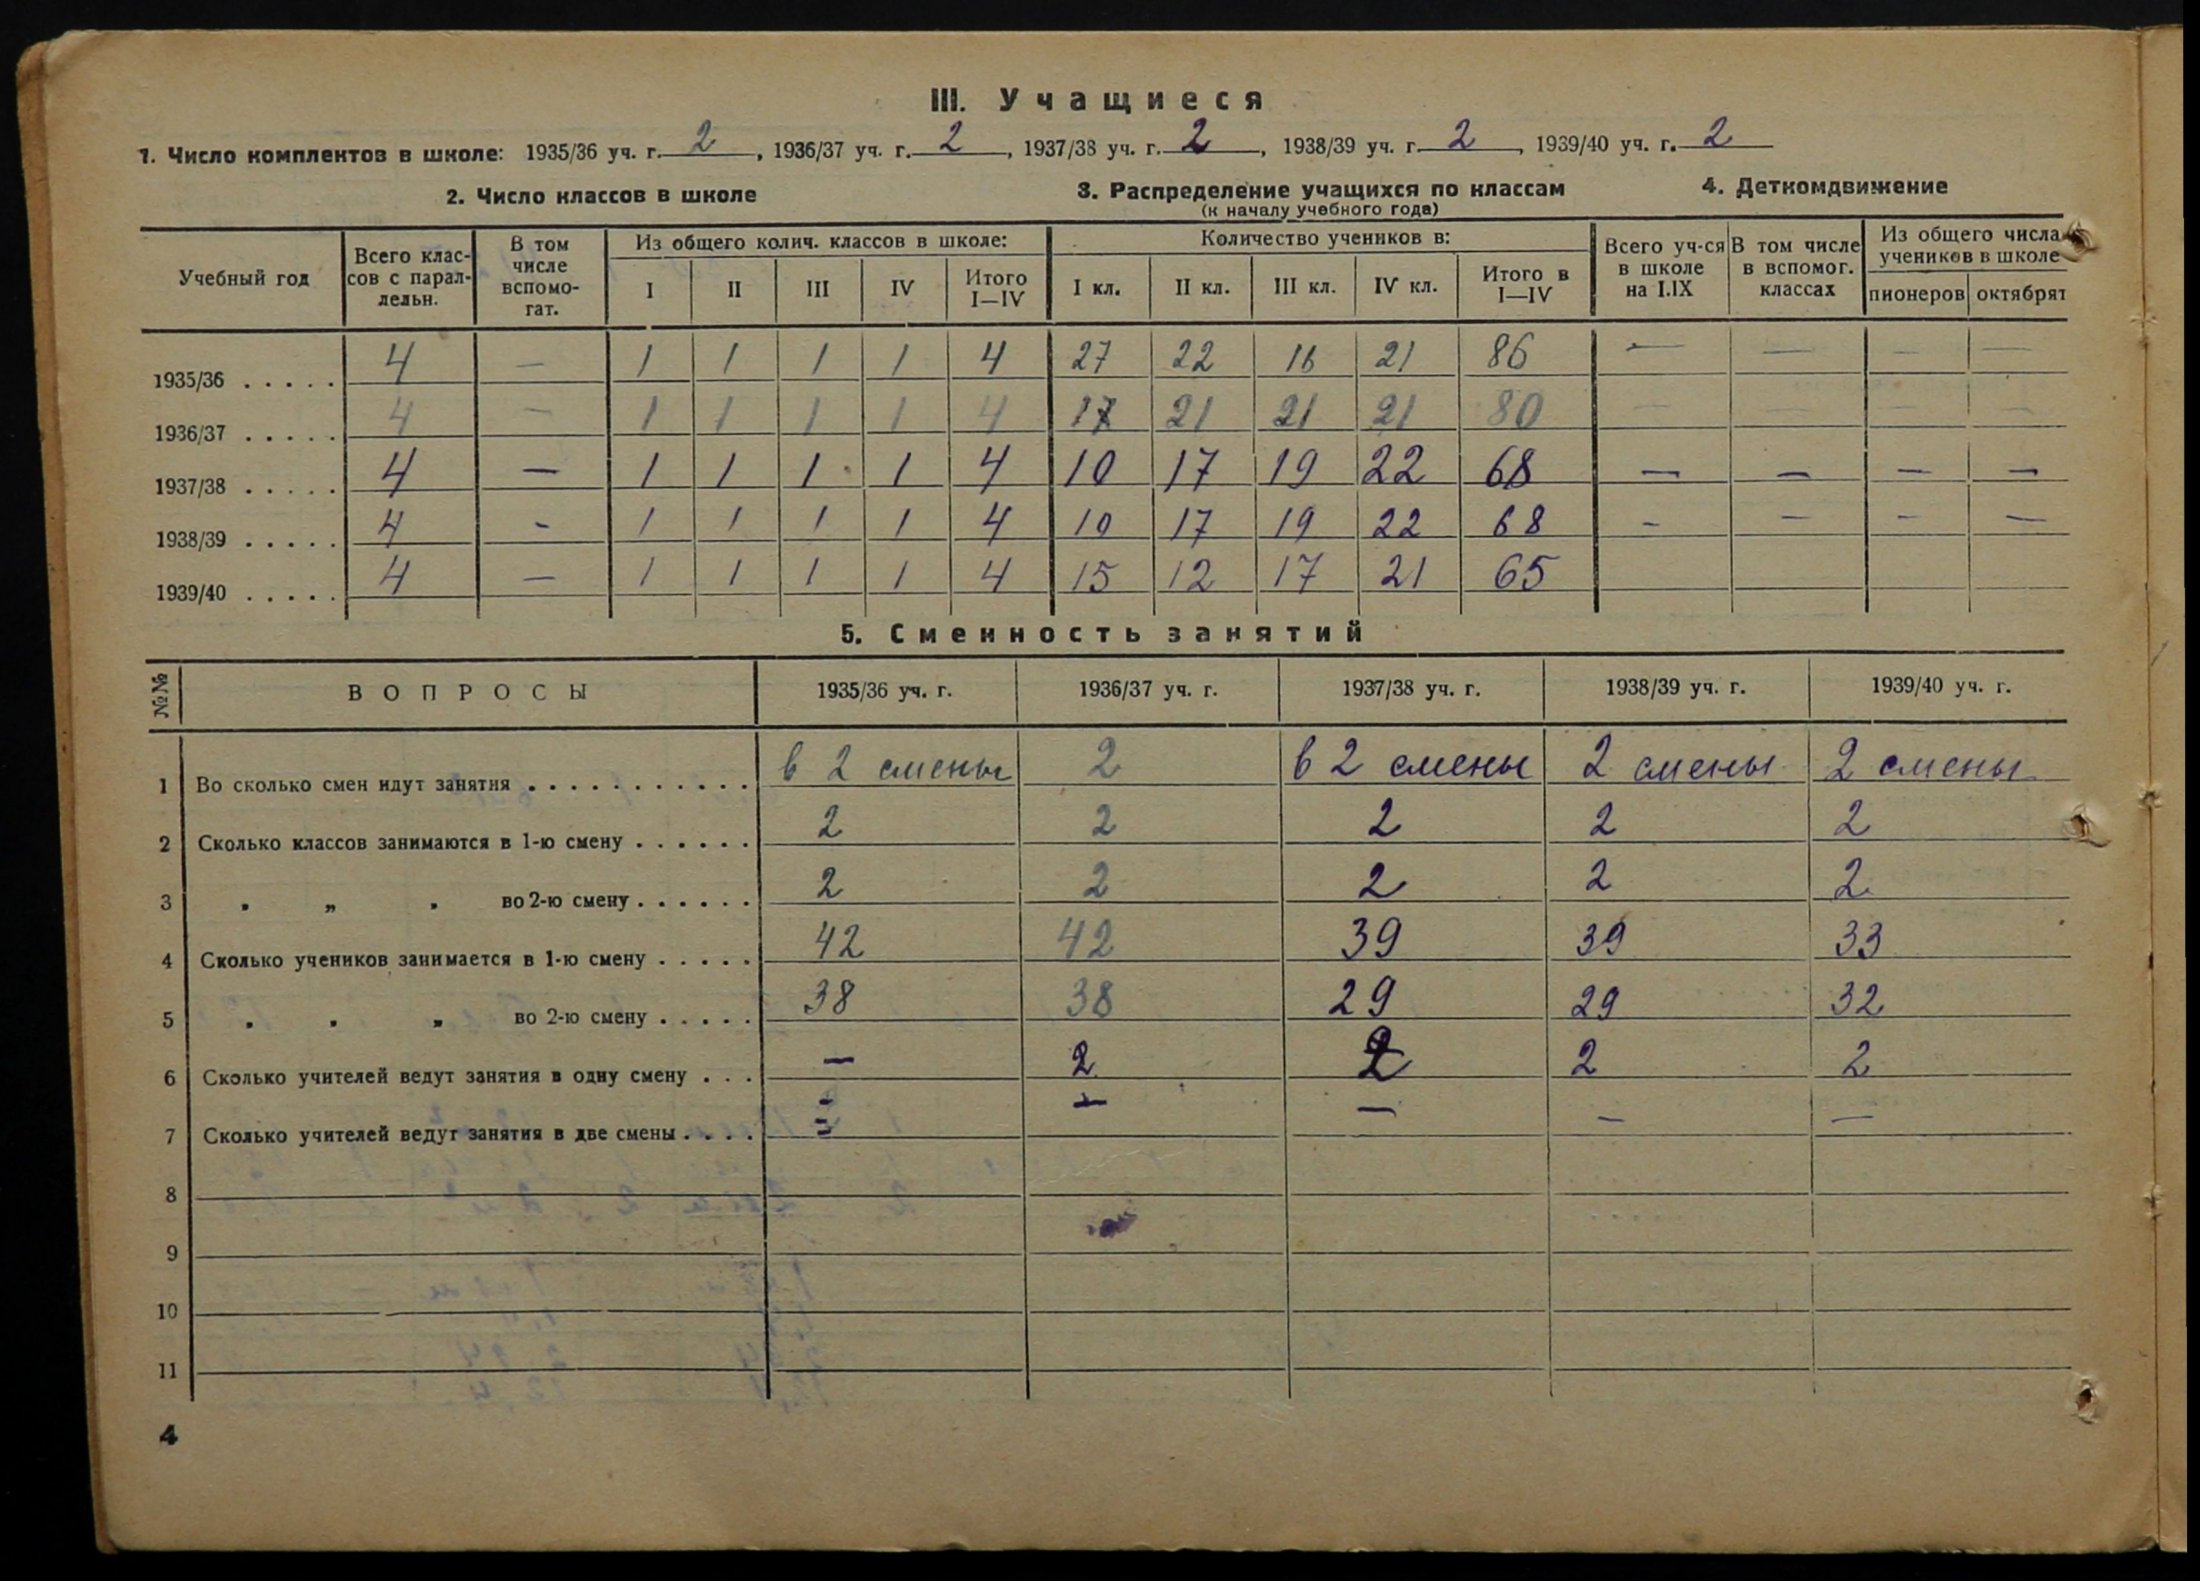 III. Учащиеся
1. Число комплектов в школе: 1935/36 уч. г. 2, 1936/37 уч. г. 2, 1937/38 уч. г. 2, 1938/39 уч. г. 2, 1939/40 уч. г. 2
2. Число классов в школе 3. Распределение учащихся по классам 4. Деткомдвижение
(к началу учебного года)
Учебный год Всего клас- сов с парал- лельн. В том числе вспомо- гат. Из общего колич. классов в школе: Количество учеников в: Всего уч-ся в школе на I.IX В том числе в вспомог. классах Из общего числа учеников в школе
I II III IV Итого I—IV I кл. II кл. III кл. IV кл. Итого в I—IV пионеров октябрят
1935/36 . . . . . 4 — 1 1 1 1 4 27 22 16 21 86 — — — —
1936/37 . . . . . 4 — 1 1 1 1 4 17 21 21 21 80 — — — —
1937/38 . . . . . 4 — 1 1 1 1 4 10 17 19 22 68 — — — —
1938/39 . . . . . 4 - 1 1 1 1 4 10 17 19 22 68 - — — —
1939/40 . . . . . 4 — 1 1 1 1 4 15 12 17 21 65
5. Сменность занятий
№№ ВОПРОСЫ 1935/36 уч. г. 1936/37 уч. г. 1937/38 уч. г. 1938/39 уч. г. 1939/40 уч. г.
1 Во сколько смен идут занятия . . . . . . . . . . . в 2 смены 2 в 2 смены 2 смены 2 смены
2 Сколько классов занимаются в 1-ю смену . . . . . . 2 2 2 2 2
3 „ „ „ во 2-ю смену . . . . . . 2 2 2 2 2
4 Сколько учеников занимается в 1-ю смену . . . . . 42 42 39 39 33
5 „ „ „ во 2-ю смену . . . . . 38 38 29 29 32
6 Сколько учителей ведут занятия в одну смену . . . — 2 2 2 2
7 Сколько учителей ведут занятия в две смены . . . . — — — —
8
9
10
11
4